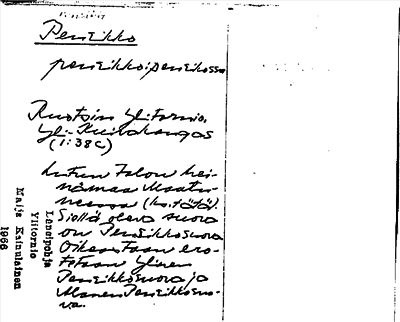 Penikko
penikko: penikossa
Ruotsin Ylitornio,
Yli-Kuivakangas
(1:38 C)
talon hei-
nämaa
(ks. tätä).
Siellä oleva suora
on Penikkosuora
Oikeastaan ero-
tetaan Ylinen
Penikkosuora ja
Alanen Penikkosuo-
ra.
Länsipohja
Ylitornio
Maija Kainulainen
1966